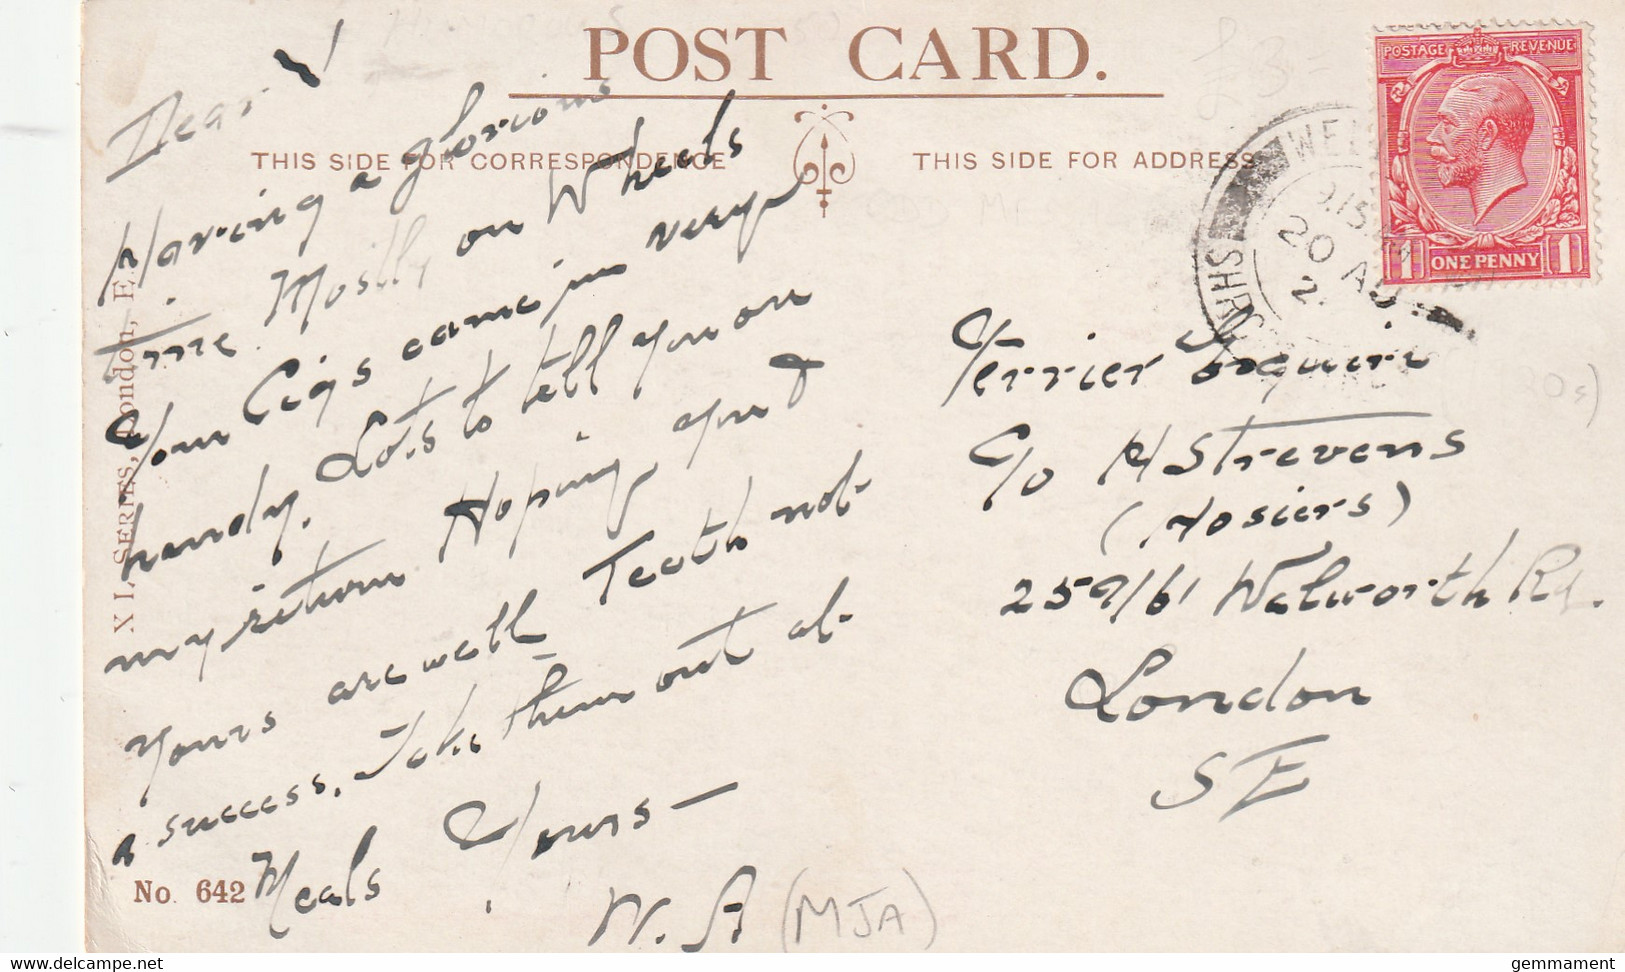 POST CARD.
THIS SIDE FOR CORRESPONDENCE
THIS SIDE FOR ADDRESS
Dear V
Having a glorious
time. Mostly on Wheels
Your Cigs came in very
handy. Lots to tell you on
my return Hoping you &
yours are well Teeth not
a success. Take them out at
Meals Yours —
W. A (MJA)
X L. SERIES, London, E.
No. 642
POSTAGE REVENUE
1 ONE PENNY 1
WEL
SHROPSHIRE
20 AU
£3-
Terrier Esquire
C/o H Strevens
(Hosiers)
259/61 Walworth Rd.
London
SE
delcampe.net
gemmament